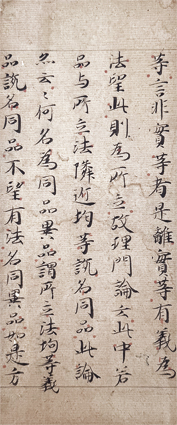 等言非實等者是離實等有義為
法望此則為一所立故理門論云此中若
品与所立法隣近均等說名同品此論
云〻何名為同品異品謂所立法均等義
品說名同品不望有法名同異品如是方